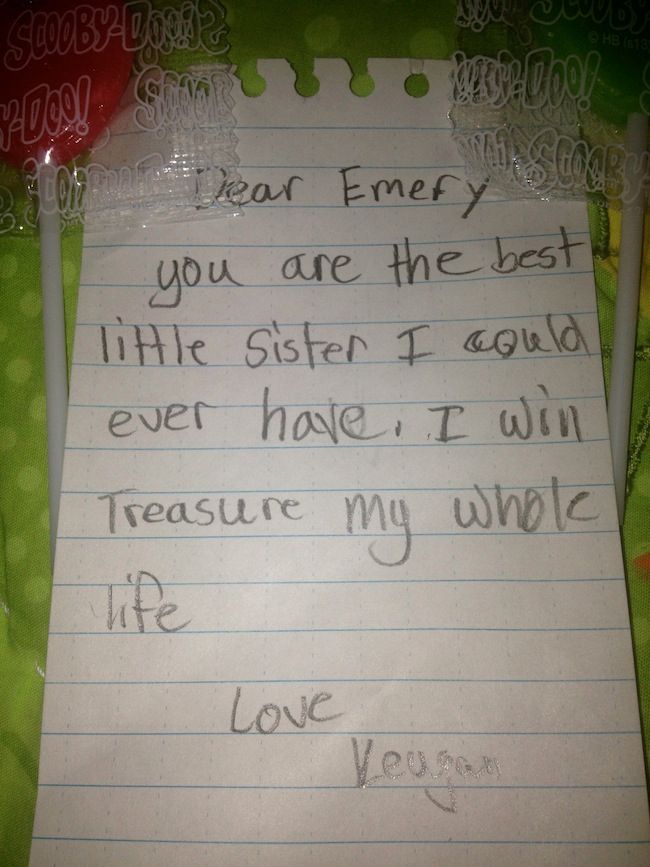 SCOOBY-DOO!
SCOOBY-DOO!
© HB
Dear Emery
you are the best
little sister I could
ever have. I win
Treasure my whole
life
Love